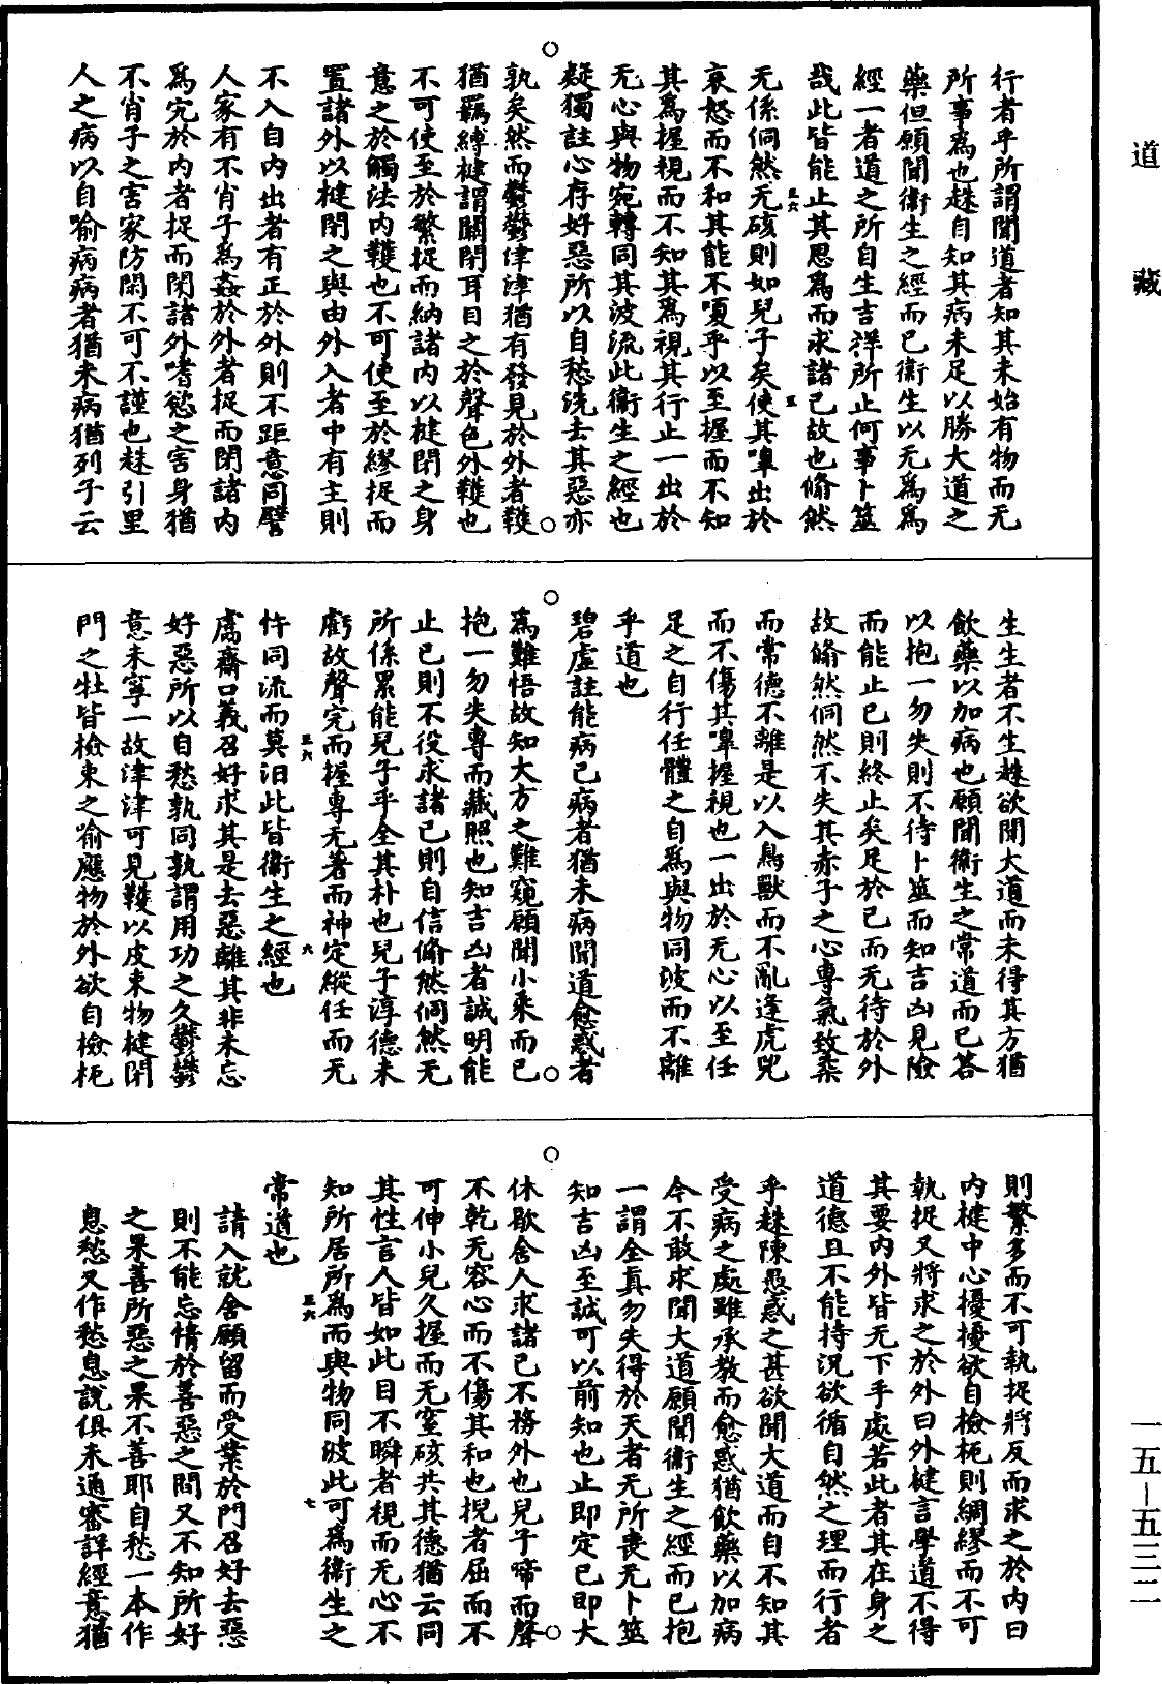 道藏
行者乎所謂聞道者知其未始有物而无
所事為也趎自知其病未足以勝大道之
藥但願聞衞生之經而已衞生以无為為
經一者道之所自生吉祥所止何事卜筮
哉此皆能止其思為而求諸己故也翛然
无係侗然无硋則如兒子矣使其嘷出於
哀怒而不和其能不嗄乎以至握而不知
其為握視而不知其為視其行止一出於
无心與物宛轉同其波流此衞生之經也
疑獨註心存好惡所以自愁洗去其惡亦
孰矣然而鬱鬱津津猶有發見於外者韄
猶羈縛楗謂關閉耳目之於聲色外韄也
不可使至於繁捉而納諸内以楗閉之身
意之於觸法内韄也不可使至於繆捉而
置諸外以楗閉之與由外入者中有主則
不入自内出者有正於外則不距意同譬
人家有不肖子為姦於外者捉而閉諸内
為宄於内者捉而閉諸外嗜慾之害身猶
不肖子之害家防閑不可不謹也趎引里
人之病以自喻病病者猶未病猶列子云
生生者不生趎欲聞大道而未得其方猶
飲藥以加病也願聞衞生之常道而已答
以抱一勿失則不待卜筮而知吉凶見險
而能止已則終止矣足於己而无待於外
故翛然侗然不失其赤子之心專氣致柔
而常德不離是以入鳥獸而不亂逢虎兕
而不傷其嘷握視也一出於无心以至任
足之自行任體之自為與物同波而不離
乎道也
碧虛註能病己病者猶未病聞道愈惑者
為難悟故知大方之難窺願聞小乘而已
抱一勿失專而藏照也知吉凶者誠明能
止已則不役求諸己則自信翛然侗然无
所係累能兒子乎全其朴也兒子淳德未
虧故聲完而握專无著而神定縱任而无
忤同流而莫汨此皆衞生之經也
鬳齋口義召好求其是去惡離其非未忘
好惡所以自愁孰同熟謂用功之久鬱鬱
意未寧一故津津可見韄以皮束物楗閉
門之牡皆檢束之喻應物於外欲自檢柅
則繁多而不可執捉將反而求之於内曰
内楗中心擾擾欲自檢柅則綢繆而不可
執捉又將求之於外曰外楗言學道不得
其要内外皆无下手處若此者其在身之
道德且不能持況欲循自然之理而行者
乎趎陳愚惑之甚欲聞大道而自不知其
受病之處雖承教而愈惑猶飲藥以加病
今不敢求聞大道願聞衞生之經而已抱
一謂全真勿失得於天者无所喪无卜筮
知吉凶至誠可以前知也止即定已即大
休歇舍人求諸己不務外也兒子啼而聲
不乾无容心而不傷其和也掜者屈而不
可伸小兒久握而无窒硋共其德猶云同
其性言人皆如此目不瞬者視而无心不
知所居所為而與物同波此可為衞生之
常道也
請入就舍願留而受業於門召好去惡
則不能忘情於善惡之間又不知所好
之果善所惡之果不善耶自愁一本作
息愁又作愁息說俱未通審詳經意猶
一五—五三二